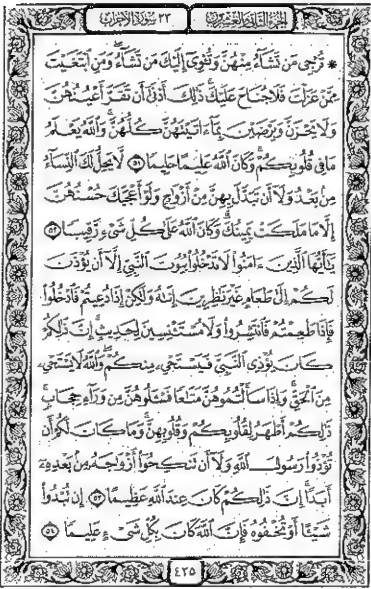 الجزء الثاني والعشرون
٣٣ سورة الأحزاب
* تُرْجِي مَن تَشَآءُ مِنْهُنَّ وَتُـْٔوِىٓ إِلَيْكَ مَن تَشَآءُ وَمَنِ ٱبْتَغَيْتَ
مِمَّنْ عَزَلْتَ فَلَا جُنَاحَ عَلَيْكَ ذَٰلِكَ أَدْنَىٰٓ أَن تَقَرَّ أَعْيُنُهُنَّ
وَلَا يَحْزَنَّ وَيَرْضَيْنَ بِمَآ ءَاتَيْتَهُنَّ كُلُّهُنَّ وَٱللَّهُ يَعْلَمُ
مَا فِى قُلُوبِكُمْ وَكَانَ ٱللَّهُ عَلِيمًا حَلِيمًا ٥١ لَّا يَحِلُّ لَكَ ٱلنِّسَآءُ
مِنۢ بَعْدُ وَلَآ أَن تَبَدَّلَ بِهِنَّ مِنْ أَزْوَٰجٍ وَلَوْ أَعْجَبَكَ حُسْنُهُنَّ
إِلَّا مَا مَلَكَتْ يَمِينُكَ وَكَانَ ٱللَّهُ عَلَىٰ كُلِّ شَىْءٍ رَّقِيبًا ٥٢
يَـٰٓأَيُّهَا ٱلَّذِينَ ءَامَنُوا۟ لَا تَدْخُلُوا۟ بُيُوتَ ٱلنَّبِىِّ إِلَّآ أَن يُؤْذَنَ
لَكُمْ إِلَىٰ طَعَامٍ غَيْرَ نَـٰظِرِينَ إِنَىٰهُ وَلَـٰكِنْ إِذَا دُعِيتُمْ فَٱدْخُلُوا۟
فَإِذَا طَعِمْتُمْ فَٱنتَشِرُوا۟ وَلَا مُسْتَـْٔنِسِينَ لِحَدِيثٍ إِنَّ ذَٰلِكُمْ
كَانَ يُؤْذِى ٱلنَّبِىَّ فَيَسْتَحْىِۦ مِنكُمْ وَٱللَّهُ لَا يَسْتَحْىِۦ
مِنَ ٱلْحَقِّ وَإِذَا سَأَلْتُمُوهُنَّ مَتَـٰعًا فَسْـَٔلُوهُنَّ مِن وَرَآءِ حِجَابٍ
ذَٰلِكُمْ أَطْهَرُ لِقُلُوبِكُمْ وَقُلُوبِهِنَّ وَمَا كَانَ لَكُمْ أَن
تُؤْذُوا۟ رَسُولَ ٱللَّهِ وَلَآ أَن تَنكِحُوٓا۟ أَزْوَٰجَهُۥ مِنۢ بَعْدِهِۦٓ
أَبَدًا إِنَّ ذَٰلِكُمْ كَانَ عِندَ ٱللَّهِ عَظِيمًا ٥٣ إِن تُبْدُوا۟
شَيْـًٔا أَوْ تُخْفُوهُ فَإِنَّ ٱللَّهَ كَانَ بِكُلِّ شَىْءٍ عَلِيمًا ٥٤
٤٢٥